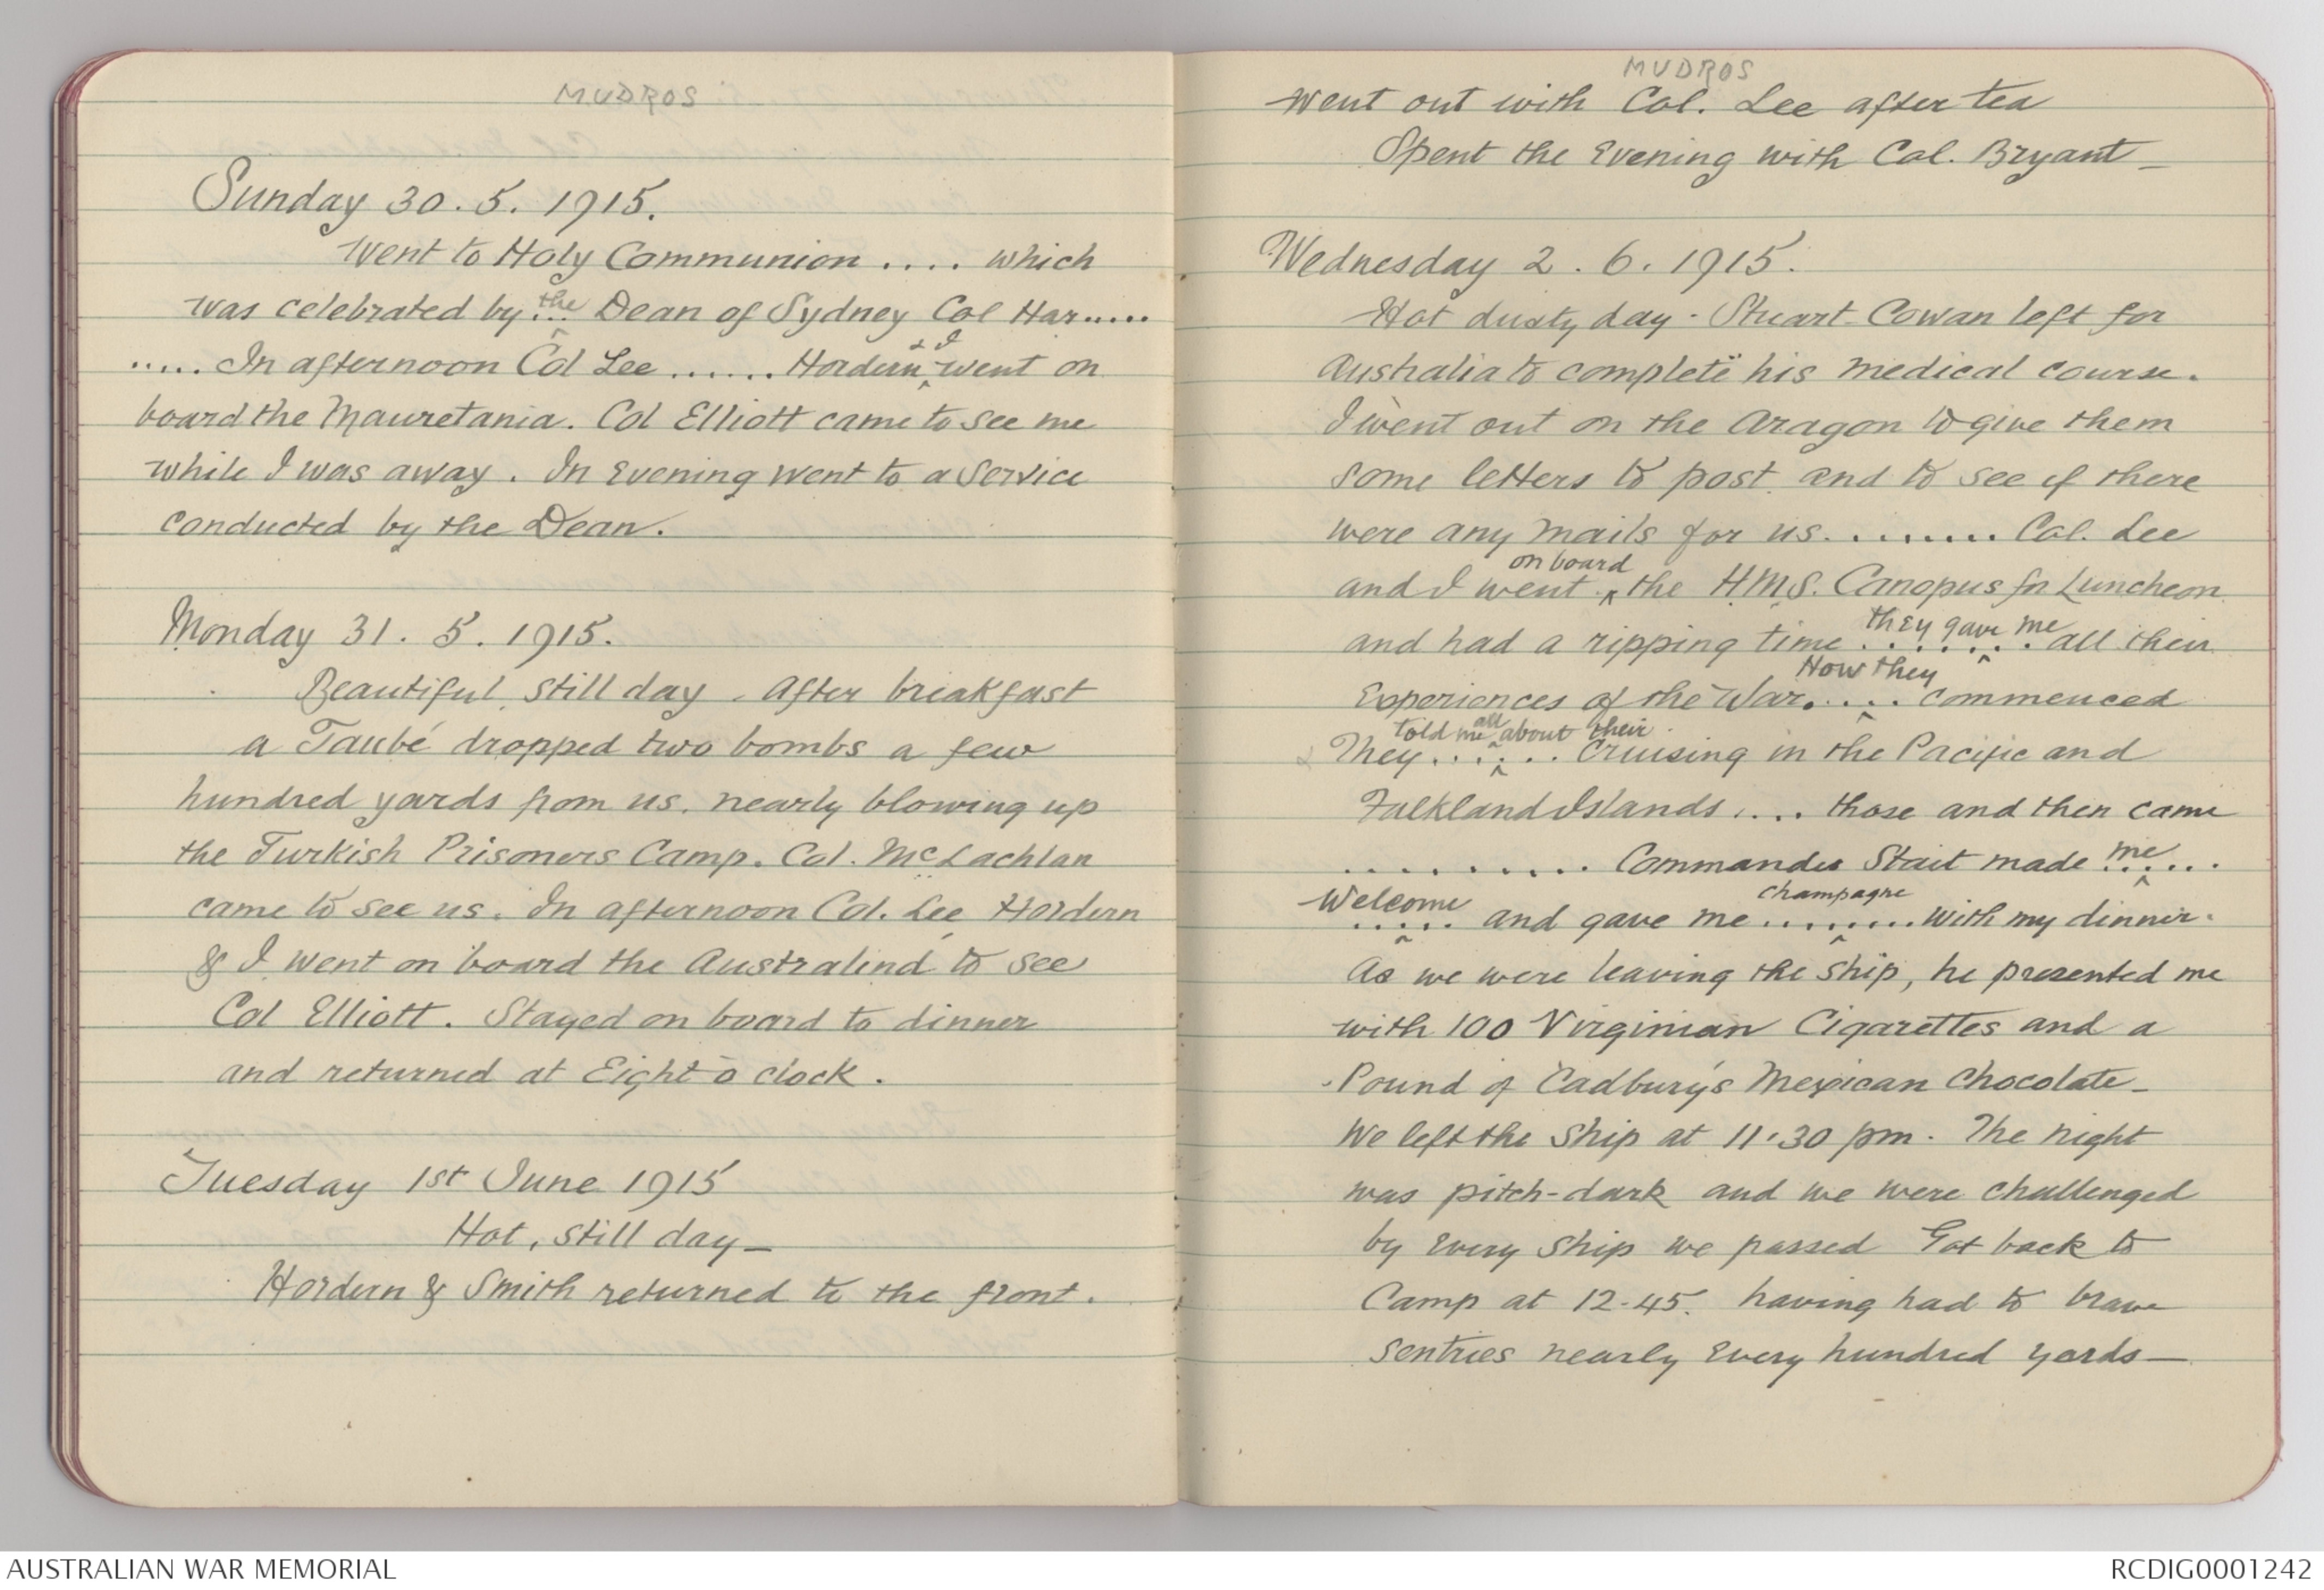 MUDROS
Sunday 30. 5. 1915.
Went to Holy Communion .... which
was celebrated by the ... Dean of Sydney Col Har.....
..... In afternoon Col Lee ...... Hordern & I went on
board the Mauretania. Col Elliott came to see me
while I was away. In Evening went to a Service
conducted by the Dean.
Monday 31. 5. 1915.
Beautiful, still day. After breakfast
a Taubé dropped two bombs a few
hundred yards from us, nearly blowing up
the Turkish Prisoners Camp. Col. McLachlan
came to see us. In afternoon Col. Lee, Hordern
& I went on board the Australind to see
Col Elliott. Stayed on board to dinner
and returned at Eight o clock.
Tuesday 1st June 1915
Hot, still day_
Hordern & Smith returned to the front.
MUDROS
went out with Col. Lee after tea
Spent the Evening with Col. Bryant_
Wednesday 2. 6. 1915.
Hot dusty day - Stuart Cowan left for
Australia to complete his medical course.
I went out on the Aragon to give them
some letters to post, and to see if there
were any mails for us. ....... Col. Lee
and I went on board the H.M.S. Canopus for Luncheon
and had a ripping time they gave me ....... all their
Experiences of the War. How they .... commenced
They told me all about their ...... Cruising in the Pacific and
Falkland Islands .... those and then came
.......... Commander Stait made me .....
Welcome ..... and gave me champagne ........ with my dinner.
As we were leaving the ship, he presented me
with 100 Virginian Cigarettes and a
Pound of Cadbury's Mexican Chocolate_
We left the ship at 11.30 pm. The night
was pitch-dark and we were challenged
by every ship we passed Got back to
Camp at 12-45. having had to brave
sentries nearly every hundred yards_
AUSTRALIAN WAR MEMORIAL
RCDIG0001242